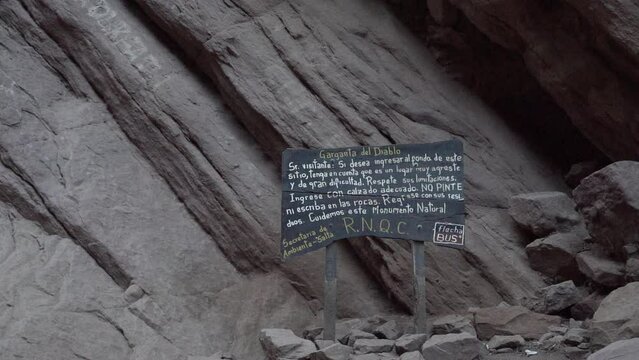 Garganta del Diablo
Sr. visitante: Si desea ingresar al fondo de este
sitio, tenga en cuenta que es un lugar muy agreste
y de gran dificultad. Respete sus limitaciones.
Ingrese con calzado adecuado. NO PINTE
ni escriba en las rocas. Regrese con sus resi
duos. Cuidemos este Monumento Natural
Secretaría de
Ambiente-Salta
R.N.Q.C.
flecha
BUS